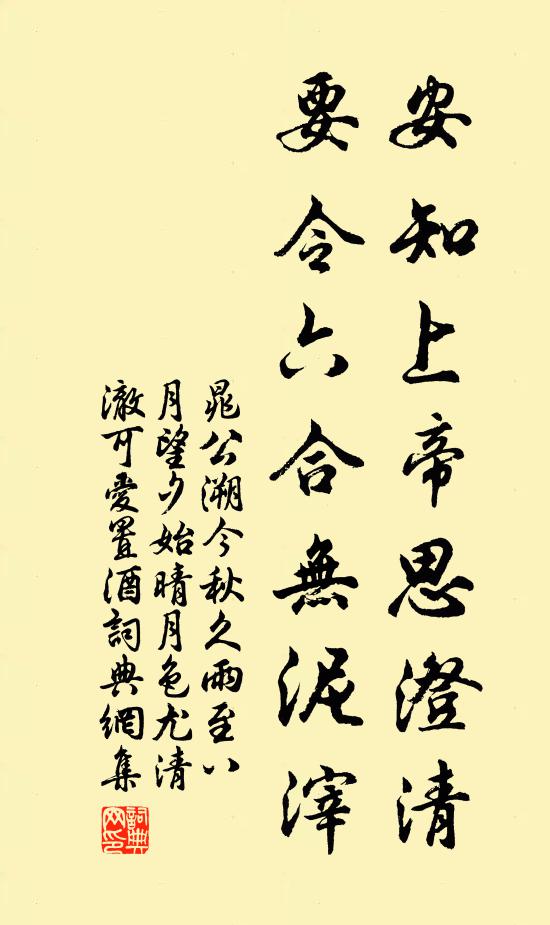 安知上帝思澄清
要令六合無泥滓
晁公溯今秋久雨至八
月望夕始晴月色尤清
澈可愛置酒詞典網集
詞典
网印